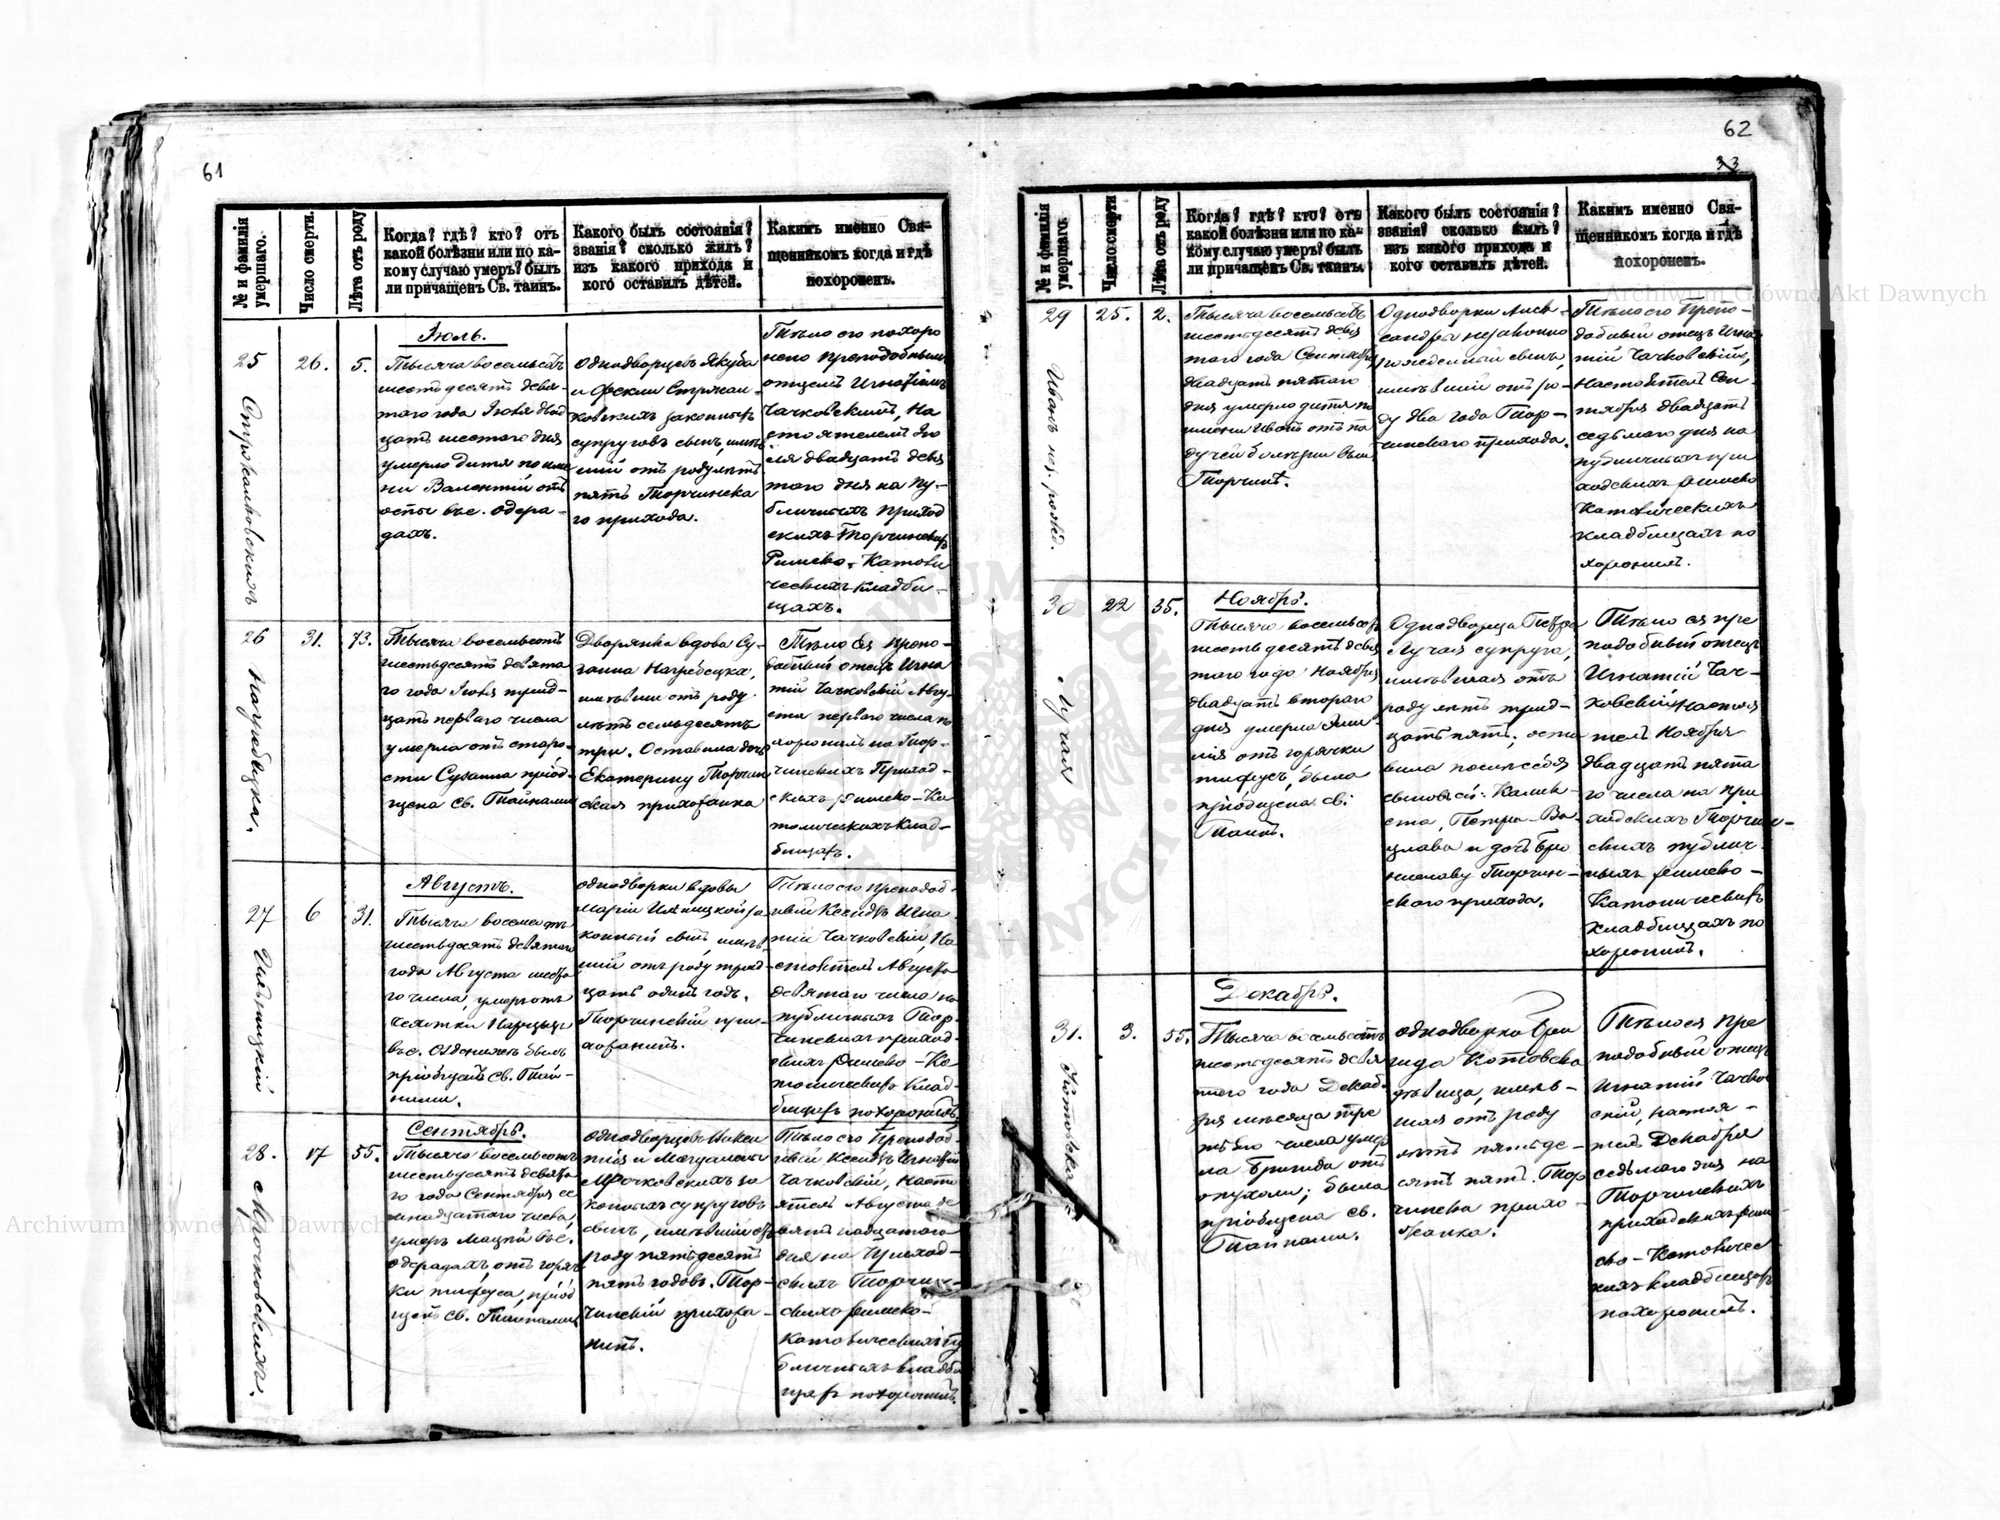 61
№ и фамилія умершаго.
Число смерти.
Лѣта отъ роду
Когда? гдѣ? кто? отъ
какой болѣзни или по ка-
кому случаю умеръ? былъ
ли причащенъ Св. таинъ.
Какого былъ состоянія?
званія? сколько жилъ?
изъ какого прихода и
кого оставилъ дѣтей.
Какимъ именно Свя-
щенникомъ когда и гдѣ
похороненъ.
25
26.
5.
Іюль.
Тысяча восемьсотъ
шестьдесятъ девя-
таго года Іюля двад
цать шестого дня
умерло дитя по име
ни Валентій отъ
оспы въ с.
Однодворцевъ Якуба
и Феклы
законныхъ
супруговъ сынъ, имѣв
шій отъ роду лѣтъ
пять Торчинска
го прихода.
Тѣло его похоро
нено преподобнымъ
отцемъ Игнатіемъ
Чачковскимъ, На
стоятелемъ Ію
ля двадцать девя
того дня на пу-
бличныхъ приход
скихъ Торчинскихъ
Римско-Католи
ческихъ кладби-
щахъ.
26
Нагребецка.
31.
73.
Тысяча восемьсотъ
шестьдесятъ девята
го года Іюля трид-
цать перваго числа
умерла отъ старо-
сти Сузанна пріоб-
щена Св. Тайнами
Дворянка вдова Су-
занна Нагребецка,
имѣвши отъ роду
лѣтъ семьдесятъ
три. Оставила дочь
Екатерину Торчин
ская прихожанка
Тѣло ея препо-
добный отецъ Игна
тій Чачковскій Авгу-
ста перваго числа по
хоронилъ на Тор-
чинскихъ Приход-
скихъ Римско-Ка
толическихъ клад-
бищахъ.
27
6
31.
Августъ.
Тысяча восемьсотъ
шестьдесятъ девятаго
года Августа шеста
го числа, умеръ отъ
былъ
пріобщенъ Св. Тай-
нами.
Однодворки вдовы
Маріи за
конный сынъ, имѣв
шій отъ роду трид
цать одинъ годъ.
Торчинскій при-
хожанинъ.
Тѣло его преподоб-
ный Ксендзъ Игна-
тій Чачковскій, На
стоятель Августа
девятаго числа на
публичныхъ Тор-
чинскихъ приход-
скихъ Римско-Ка
толическихъ клад-
бищахъ похоронилъ
28.
Мрочковскихъ.
17
55.
Сентябрь.
Тысяча восемьсотъ
шестьдесятъ девята
го года Сентября се
мнадцатаго числа,
умеръ въ с.
отъ горяч
ки тифуса, пріоб
щенъ Св. Тайнами
Однодворцевъ Викен
тія и Магдалены
Мрочковскихъ за
конныхъ супруговъ
сынъ, имѣвшій отъ
роду пятьдесятъ
пять годовъ. Тор-
чинскій прихожа-
нинъ.
Тѣло его Преподоб-
ный Ксендзъ Игнатій
Чачковскій, Насто
ятель Августа де
вятнадцатого
дня на Приход-
скихъ Торчин-
скихъ Римско-
Католическихъ пу
бличныхъ кладби
щахъ похоронилъ.
62
33
№ и фамилія умершаго.
Число смерти
Лѣта отъ роду
Когда? гдѣ? кто? отъ
какой болѣзни или по ка-
кому случаю умеръ? былъ
ли причащенъ Св. таинъ.
Какого былъ состоянія?
званія? сколько жилъ?
изъ какого прихода и
кого оставилъ дѣтей.
Какимъ именно Свя-
щенникомъ когда и гдѣ
похороненъ.
29
Иванъ нез. рожд.
25.
2.
Тысяча восемьсотъ
шестьдесятъ девя
таго года Сентября
двадцать пятаго
дня умерло дитя по
имени Иванъ отъ па
дучей болѣзни въ м.
Торчинѣ.
Однодворки Алек-
сандры незаконно
рожденный сынъ,
имѣвшій отъ ро-
ду два года Тор-
чинскаго прихода.
Тѣло его Препо-
добный отецъ Игна
тій Чачковскій,
Настоятель Сен-
тября двадцать
седьмаго дня на
публичныхъ при
ходскихъ Римско
Католическихъ
кладбищахъ по
хоронилъ.
30
Лучая
22
35.
Ноябрь.
Тысяча восемьсотъ
шестьдесятъ девя
таго года Ноября
двадцать втораго
дня умерла Эми-
лія отъ горячки
тифусъ, была
пріобщена св.
Таинъ.
Однодворца Петра
Лучая супруга,
имѣвшая отъ
роду лѣтъ трид-
цать пять, оста
вила послѣ себя
сыновей:
Петра-Ва-
цлава и дочь Бро
ниславу Торчин-
скаго прихода.
Тѣло ея пре
подобный отецъ
Игнатій Чач-
ковскій Настоя
тель Ноября
двадцать пята
го числа на при
ходскихъ Торчин-
скихъ публич-
ныхъ Римско-
Католическихъ
кладбищахъ по
хоронилъ.
31.
Котовска
3.
55.
Декабрь.
Тысяча восемьсотъ
шестьдесятъ девя
таго года Декаб-
ря мѣсяца тре
тьяго числа умер
ла Бригида отъ
опухоли; была
пріобщена св.
Тайнами.
Однодворка Бри
гида Котовска
дѣвица, имѣв-
шая отъ роду
лѣтъ пятьде-
сятъ пять. Тор
чинска прихо-
жанка.
Тѣло ея Пре
подобный отецъ
Игнатій Чачков
скій, настоя-
тель Декабря
седьмаго дня на
Торчинскихъ
приходскихъ Рим
ско-Католичес
кихъ кладбищахъ
похоронилъ.
Archiwum Główne Akt Dawnych
Archiwum Główne Akt Dawnych